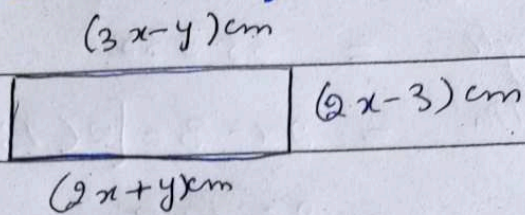 (3x-y)cm
(2x-3) cm
(2x+y)cm